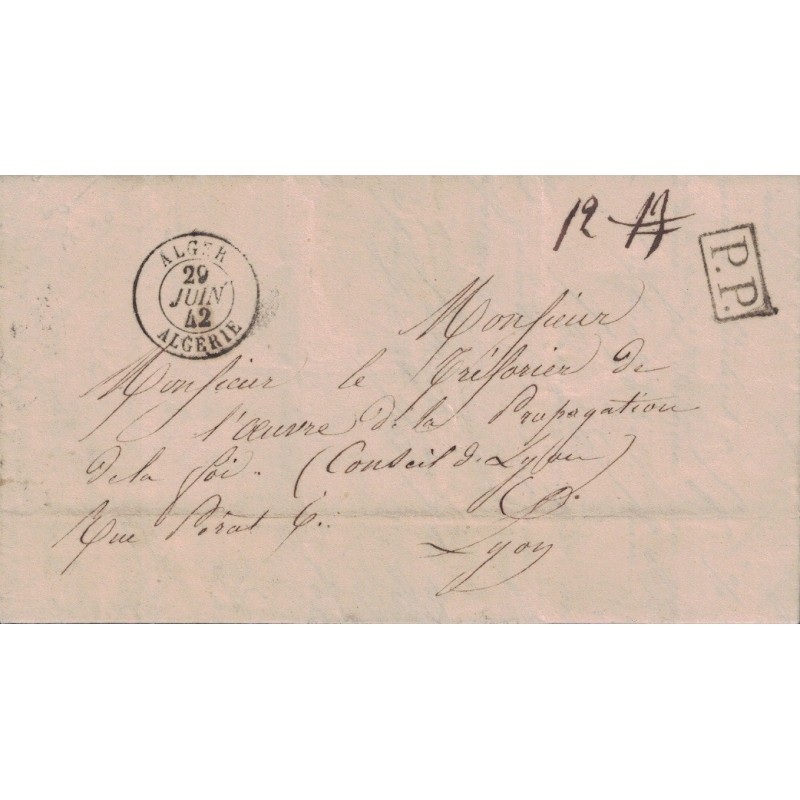 12 17
P.P.
ALGER
29
JUIN
42
ALGÉRIE
Monsieur
Monsieur le Trésorier de
l'œuvre de la Propagation
de la foi. (Conseil de Lyon)
Rue Pérat 6.
Lyon